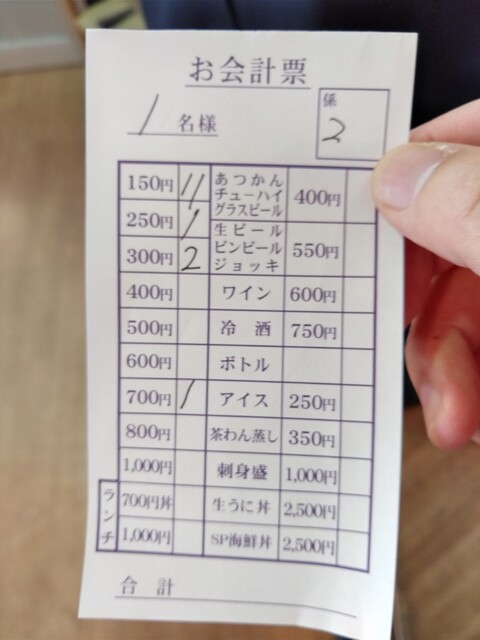 お会計票
1 名様
係
2
150円 11 あつかん チューハイ グラスビール 400円
250円 1 生ビール ビンビール ジョッキ 550円
300円 2
400円 ワイン 600円
500円 冷酒 750円
600円 ボトル
700円 1 アイス 250円
800円 茶わん蒸し 350円
1,000円 刺身盛 1,000円
ランチ
700円丼 生うに丼 2,500円
1,000円 SP海鮮丼 2,500円
合計